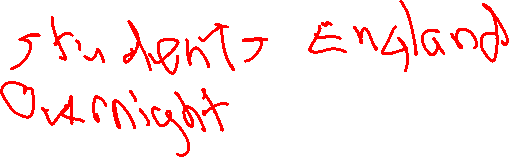 students England
Overnight